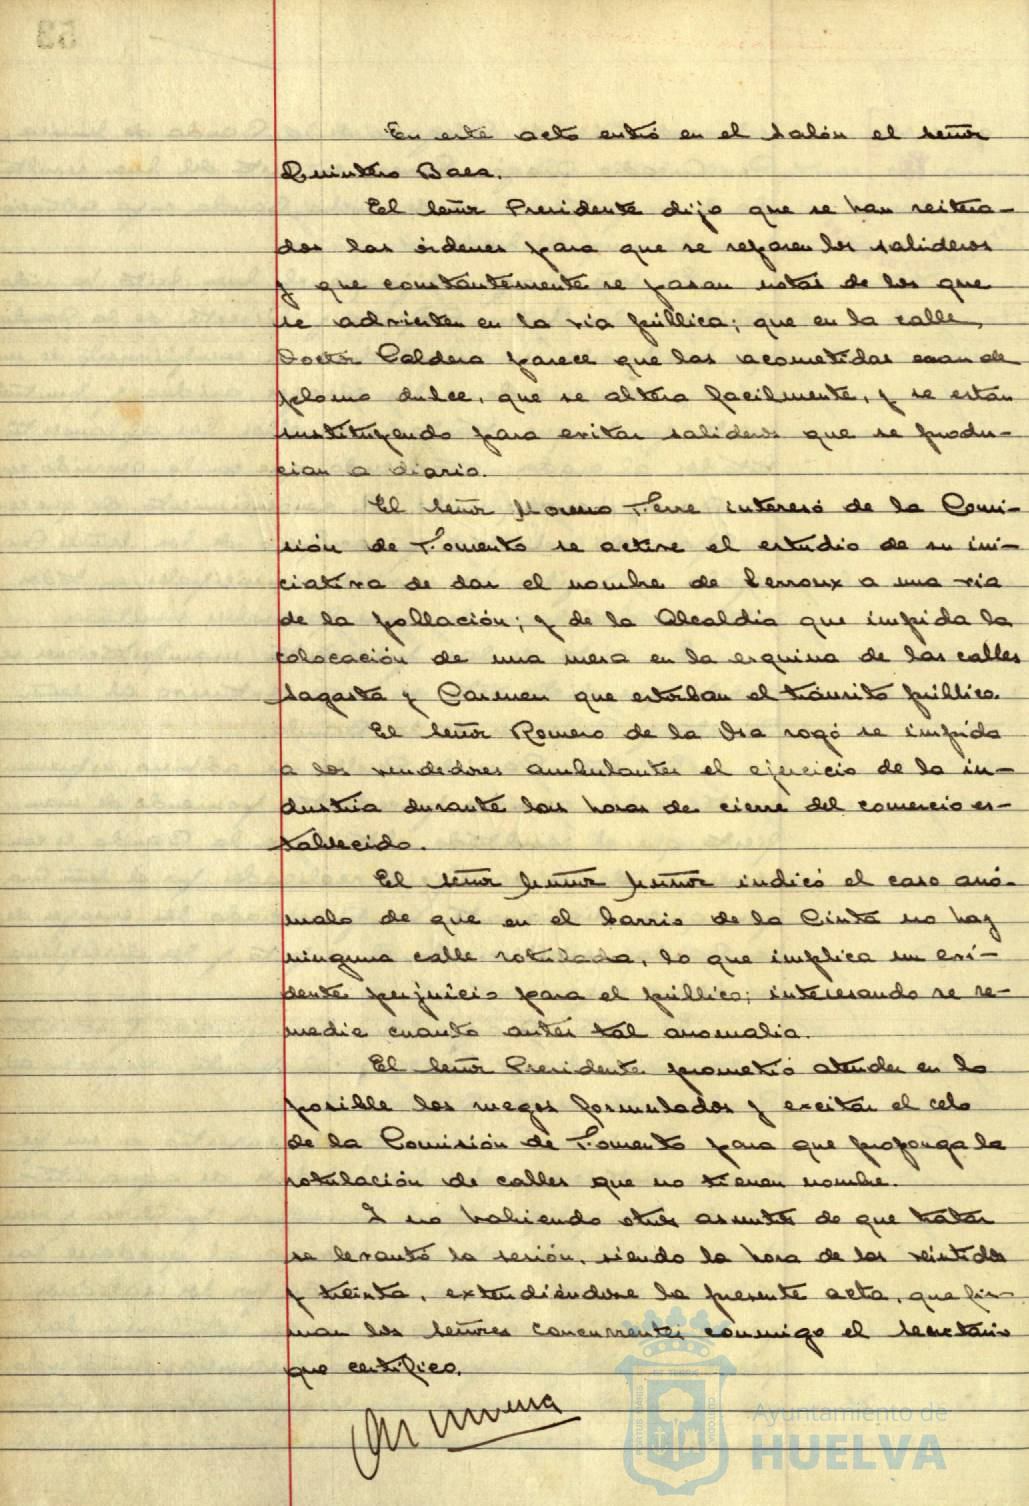 En este acto entró en el salón el señor
Quintero Baez.
El señor Presidente dijo que se han reitera-
dos las órdenes para que se reparen los salideros
y que constantemente se pasan notas de los que
se advierten en la vía pública; que en la calle
Doctor Caldera parece que las acometidas eran de
plomo dulce, que se altera facilmente, y se están
sustituyendo para evitar salideros que se produ-
cian a diario.
El señor Moreno Ferre interesó de la Comi-
sión de Fomento se active el estudio de su ini-
ciativa de dar el nombre de Lerroux a una vía
de la población; y de la Alcaldía que impida la
colocación de una mesa en la esquina de las calles
Sagasta y Carmen que estorban el tránsito público.
El señor Romero de la Osa rogó se impida
a los vendedores ambulantes el ejercicio de la in-
dustria durante las horas de cierre del comercio es-
tablecido.
El señor indicó el caso anó-
malo de que en el barrio de la Cinta no hay
ninguna calle rotulada, lo que implica un evi-
dente perjuicio para el público; interesando se re-
medie cuanto antes tal anomalía.
El señor Presidente prometió atender en lo
posible los ruegos formulados y excitar el celo
de la Comisión de Fomento para que proponga la
rotulación de calles que no tienen nombre.
Y no habiendo otros asuntos de que tratar
se levantó la sesión, siendo la hora de las veintidos
y treinta, extendiéndose la presente acta, que fir-
man los señores concurrentes conmigo el secretario
que certifico.
Ayuntamiento de
HUELVA